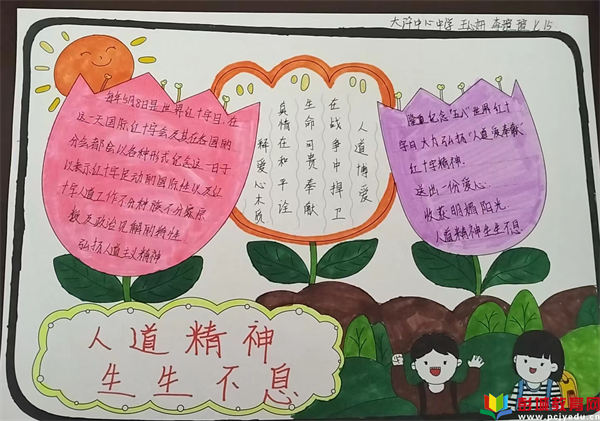 大许中心中学
每年5月8日是世界红十字日,在
这一天国际红十字会及其在各国的
分会都会以各种形式纪念这一日子
以表示红十字运动的国际性以及红
十字人道工作不分种族不分宗教
教及政治见解的特性
弘扬人道主义精神
人道博爱
在战争中捍卫
生命可贵奉献
真情在和平诠
释爱心本质
隆重纪念"五八"世界红十
字日大力弘扬"人道 奉献"
红十字精神.
送出一份爱心.
收获明媚阳光.
人道精神生生不息
人道精神
生生不息
彭城教育网
www.pcjyedu.cn